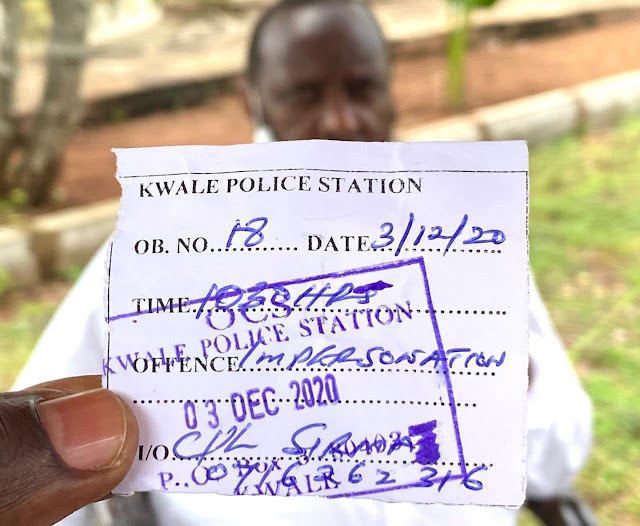 KWALE POLICE STATION
OB. NO. 18 DATE 3/12/20
TIME 1030HRS
OCS
KWALE POLICE STATION
OFFENCE IMPERSONATION
03 DEC 2020
I/O. CPL
P. O. Box
KWALE